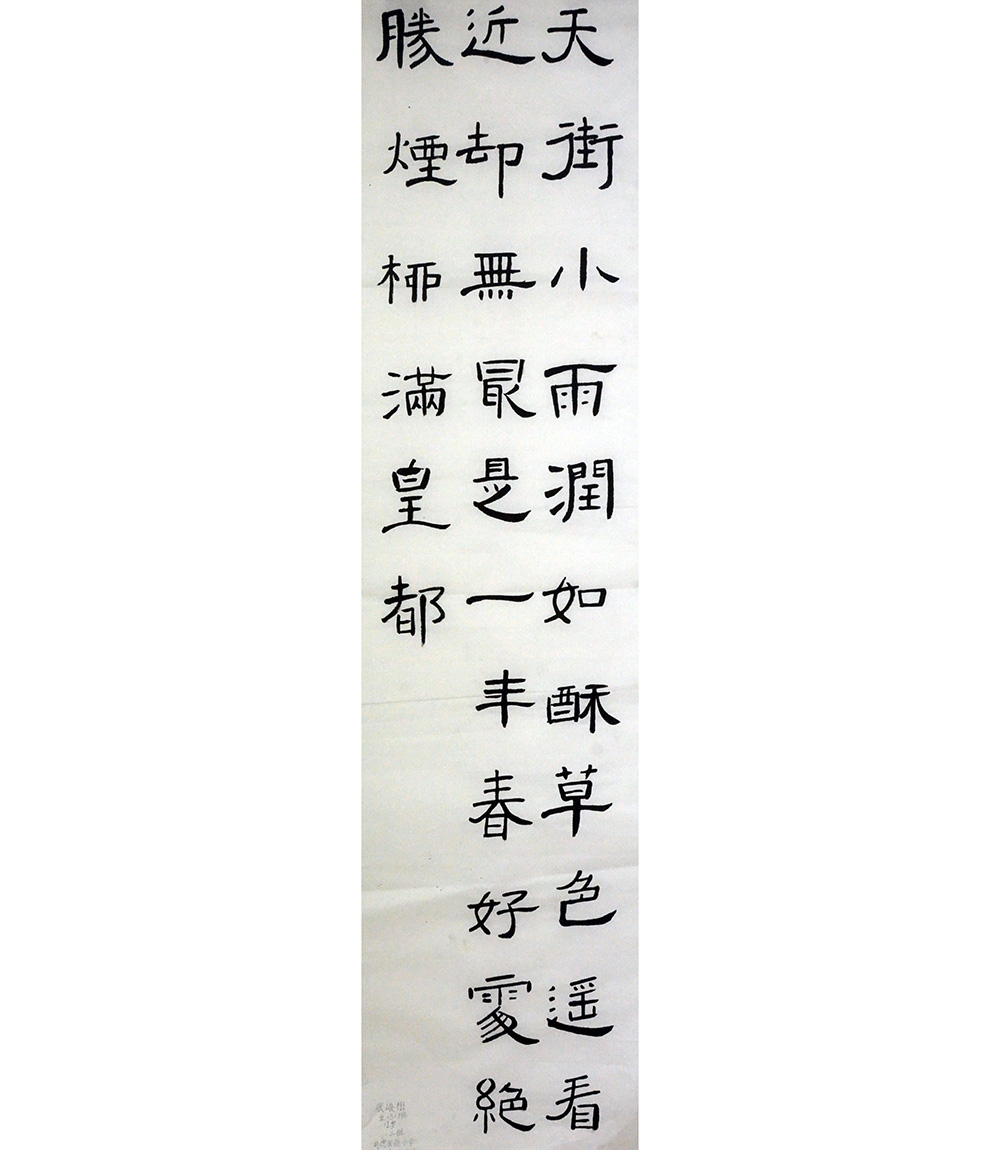 天街小雨潤如酥草色遥看
近却無最是一年春好處絶
勝煙柳滿皇都